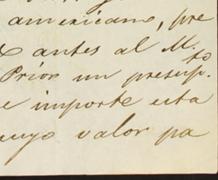 americano, pre
antes al M.to
Prior un presup.
e importe esta
cuyo valor pa